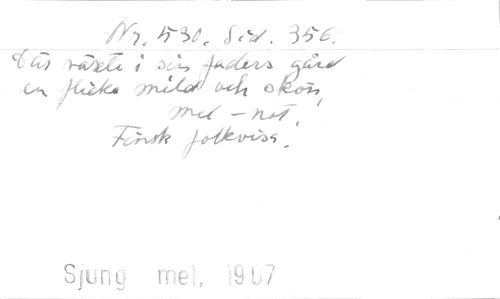 Nr. 530. Sid. 356.
Där växte i sin faders gård
en flicka mild och skön,
mel - not.
Finsk folkvisa.
Sjung mel. 1907